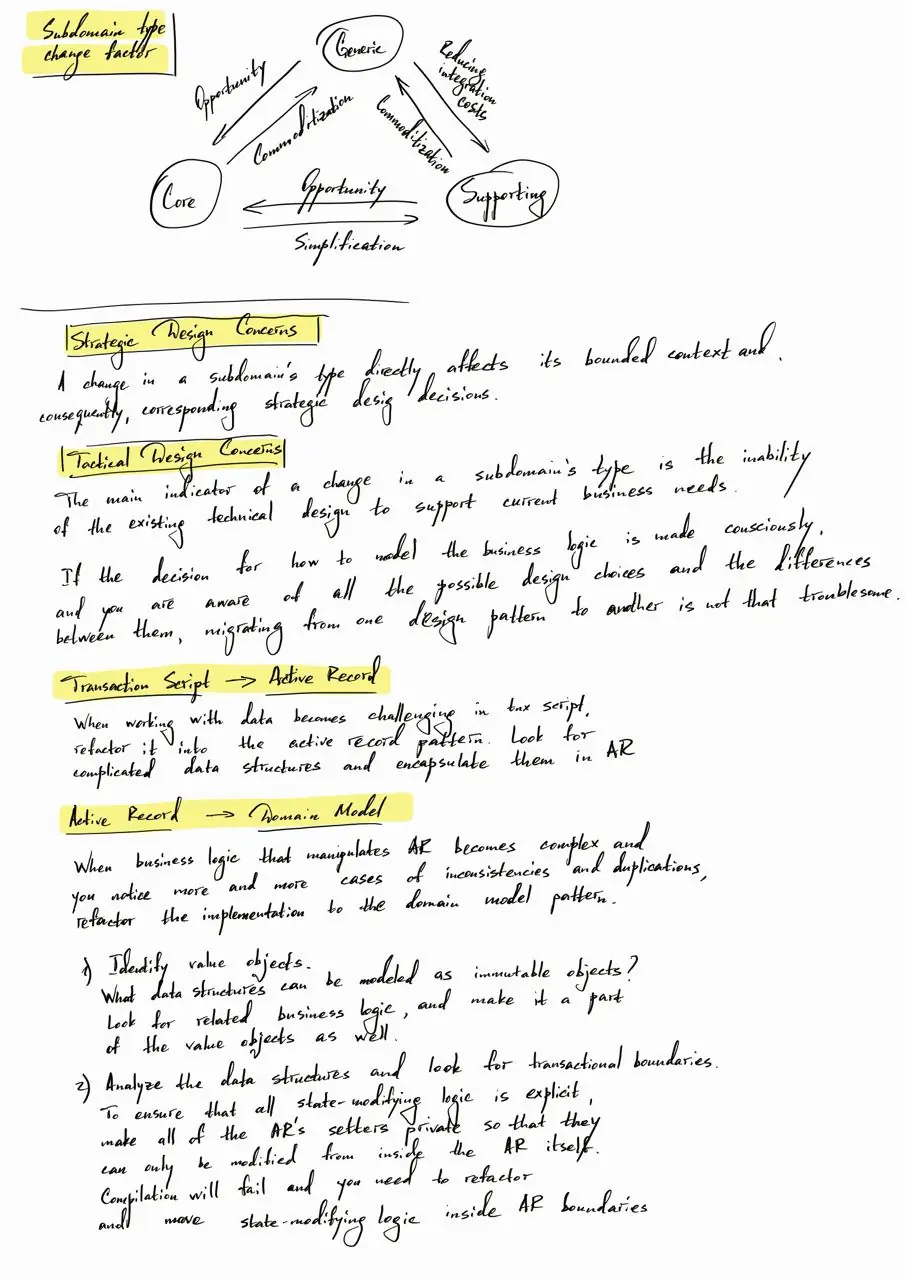 Subdomain type
change factor
Generic
Opportunity
Commoditization
Reducing
integration
costs
Commoditization
Core
Opportunity
Supporting
Simplification
Strategic Design Concerns
A change in a subdomain's type directly affects its bounded context and,
consequently, corresponding strategic desig decisions.
Tactical Design Concerns
The main indicator of a change in a subdomain's type is the inability
of the existing technical design to support current business needs.
If the decision for how to model the business logic is made consciously,
and you are aware of all the possible design choices and the differences
between them, migrating from one design pattern to another is not that troublesome.
Transaction Script → Active Record
When working with data becomes challenging in tnx script,
refactor it into the active record pattern. Look for
complicated data structures and encapsulate them in AR
Active Record → Domain Model
When business logic that manipulates AR becomes complex and
you notice more and more cases of inconsistencies and duplications,
refactor the implementation to the domain model pattern.
1) Identify value objects.
What data structures can be modeled as immutable objects?
Look for related business logic, and make it a part
of the value objects as well.
2) Analyze the data structures and look for transactional boundaries.
To ensure that all state-modifying logic is explicit,
make all of the AR's setters private so that they
can only be modified from inside the AR itself.
Compilation will fail and you need to refactor
and move state-modifying logic inside AR boundaries